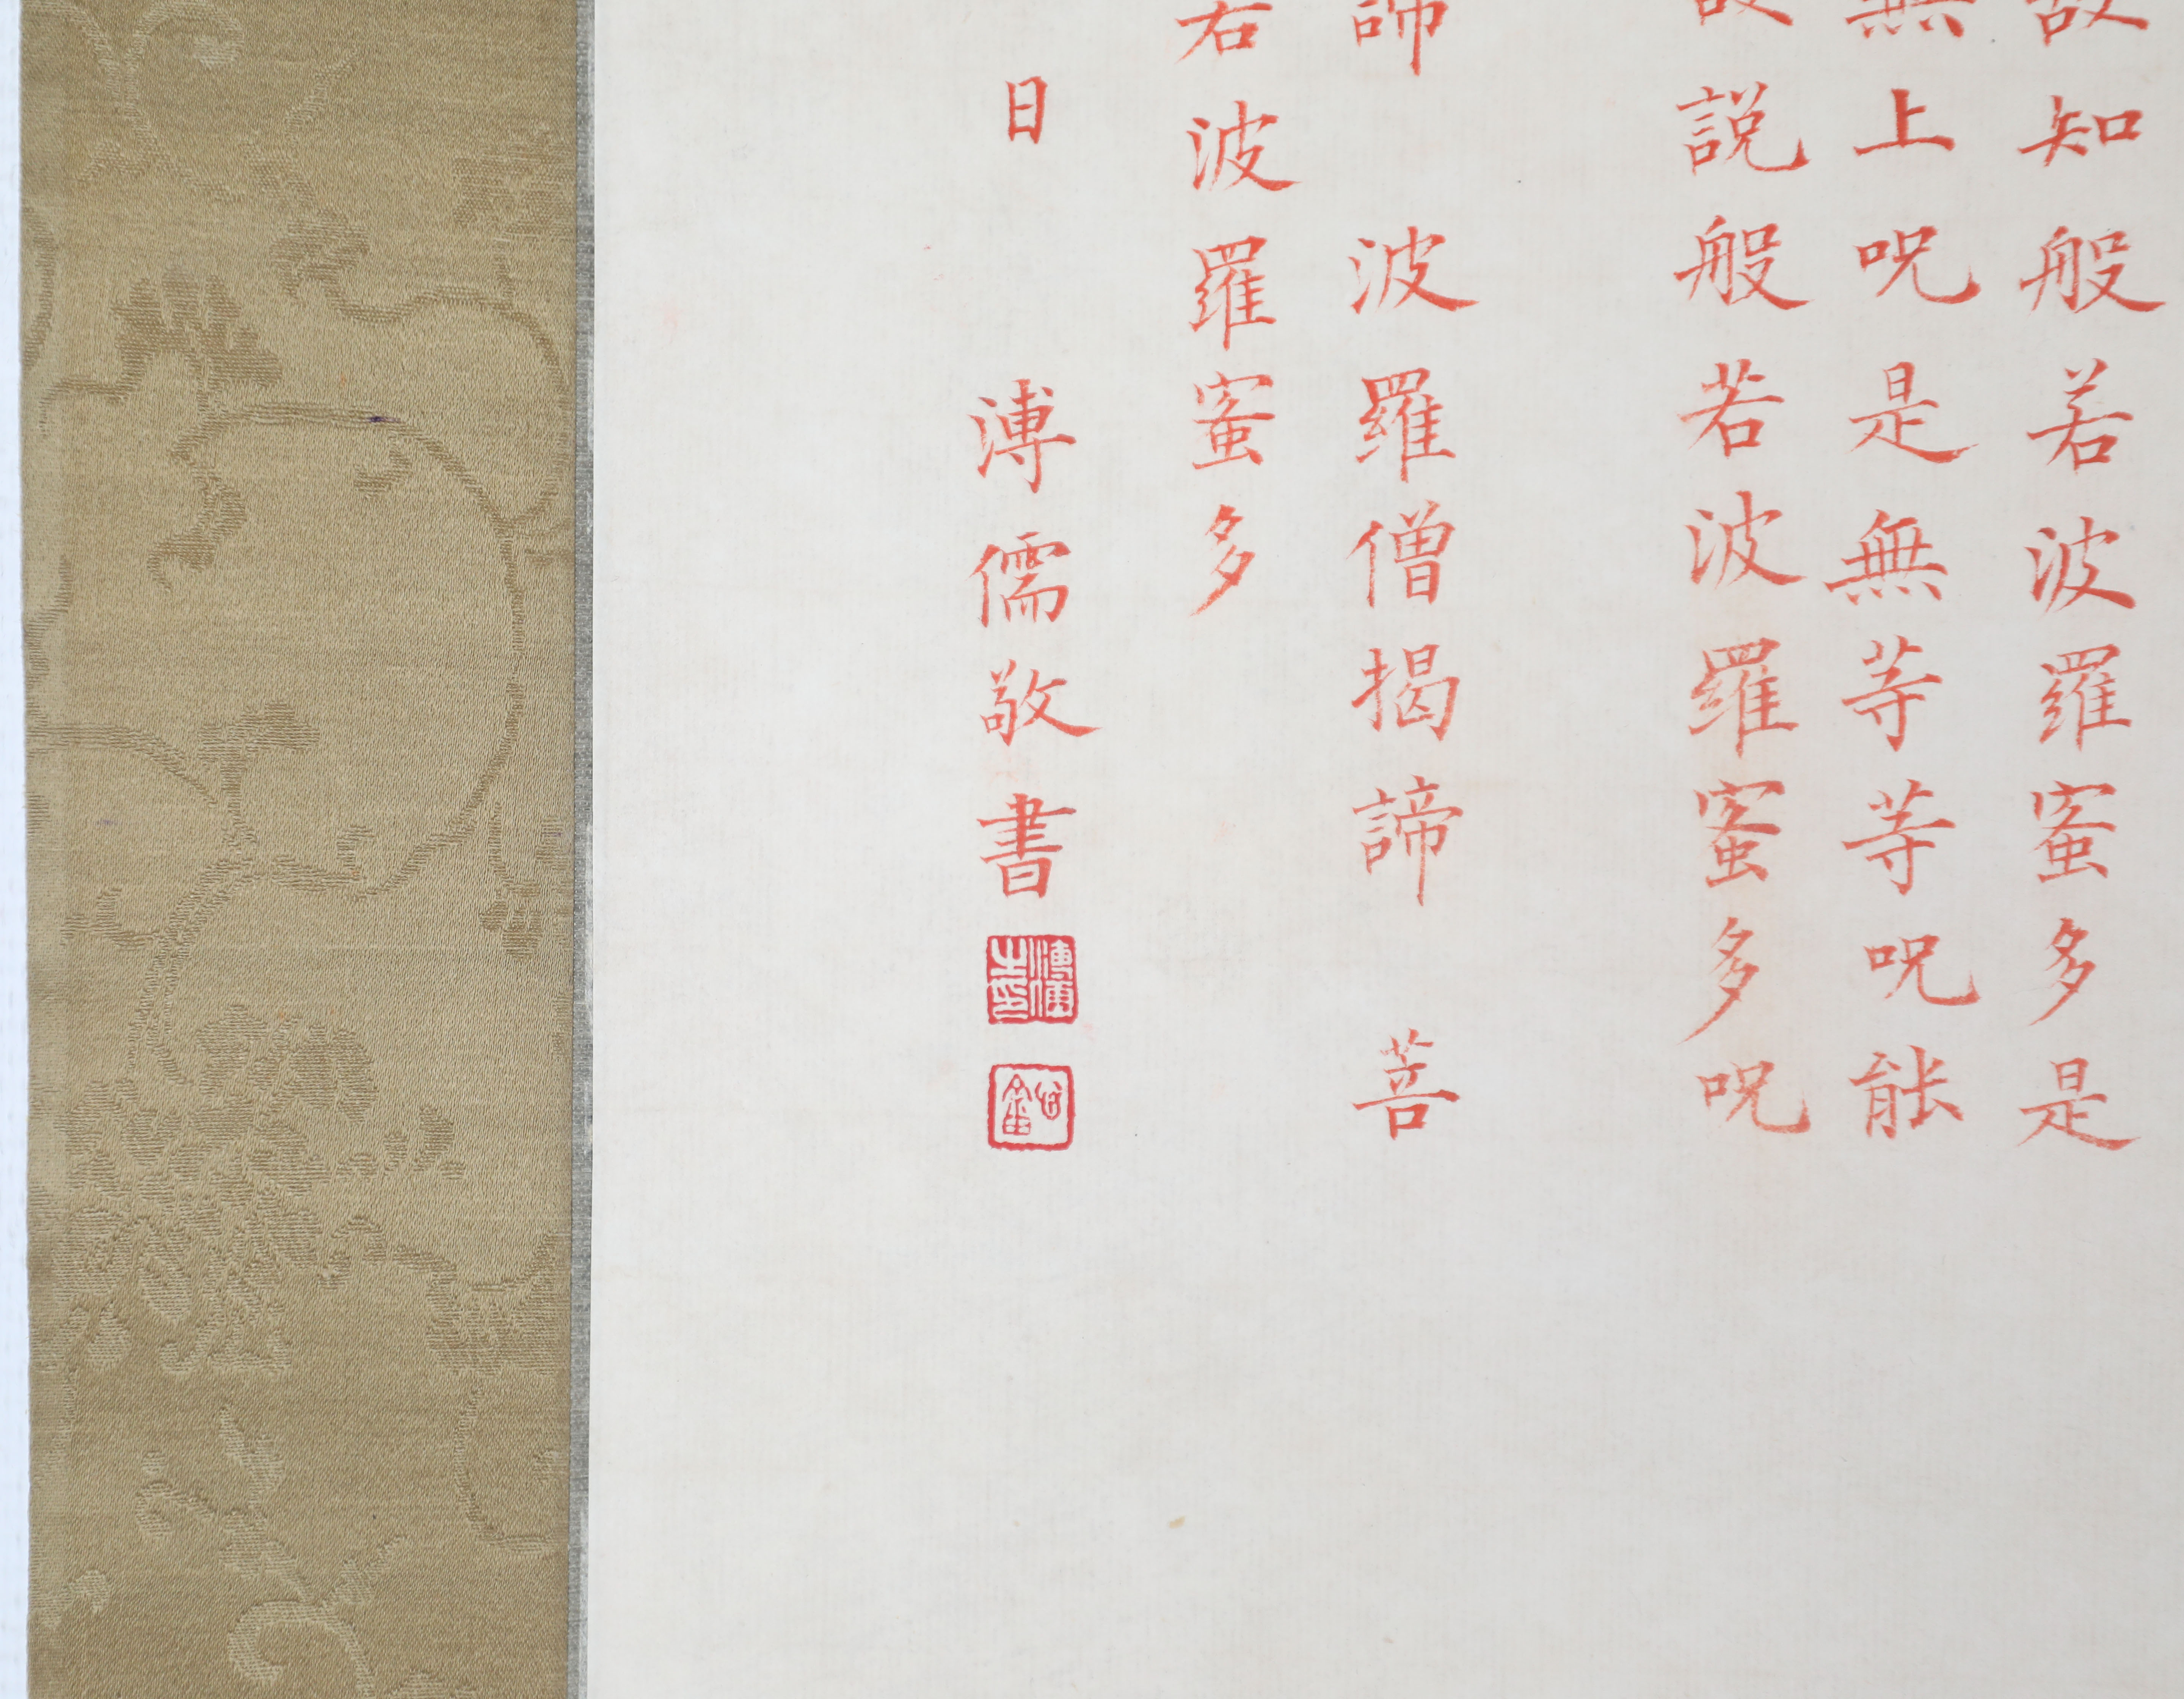 故知般若波羅蜜多是
無上呪是無等等呪能
故說般若波羅蜜多呪
諦　波羅僧揭諦　菩
若波羅蜜多
日　溥儒敬書
溥儒之印